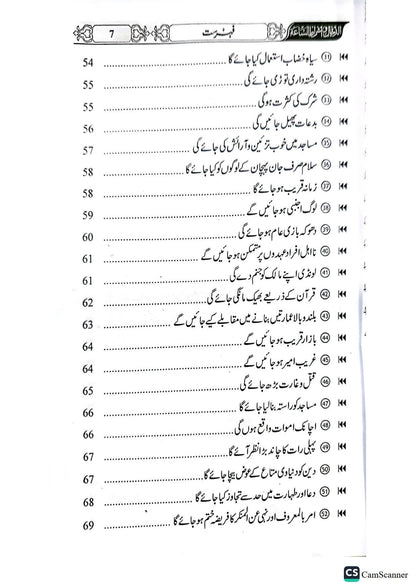 7 فہرست
㉛ سیاہ خضاب استعمال کیا جائے گا ........ 54
㉜ رشتہ داری توڑی جائے گی ........ 55
㉝ شرک کی کثرت ہوگی ........ 55
㉞ بدعات پھیل جائیں گی ........ 56
㉟ مساجد میں خوب تزئین و آرائش کی جائے گی ........ 57
㊱ سلام صرف جان پہچان کے لوگوں کو کیا جائے گا ........ 58
㊲ زمانہ قریب ہو جائے گا ........ 58
㊳ لوگ اجنبی ہو جائیں گے ........ 59
㊴ دھوکہ بازی عام ہو جائے گی ........ 60
㊵ نااہل افراد عہدوں پر متمکن ہو جائیں گے ........ 61
㊶ لونڈی اپنے مالک کو جنم دے گی ........ 61
㊷ قرآن کے ذریعے بھیک مانگی جائے گی ........ 62
㊸ بلند و بالا عمارتیں بنانے میں مقابلے کیے جائیں گے ........ 63
㊹ بازار قریب ہو جائیں گے ........ 64
㊺ غریب امیر ہو جائیں گے ........ 64
㊻ قتل و غارت بڑھ جائے گی ........ 65
㊼ مساجد کو راستہ بنا لیا جائے گا ........ 66
㊽ اچانک اموات واقع ہوں گی ........ 66
㊾ پہلی رات کا چاند بڑا نظر آئے گا ........ 67
㊿ دین کو دنیاوی متاع کے عوض بیچا جائے گا ........ 67
51 دعا اور طہارت میں حد سے تجاوز کیا جائے گا ........ 68
52 امر بالمعروف اور نہی عن المنکر کا فریضہ ختم ہو جائے گا ........ 69
CS CamScanner